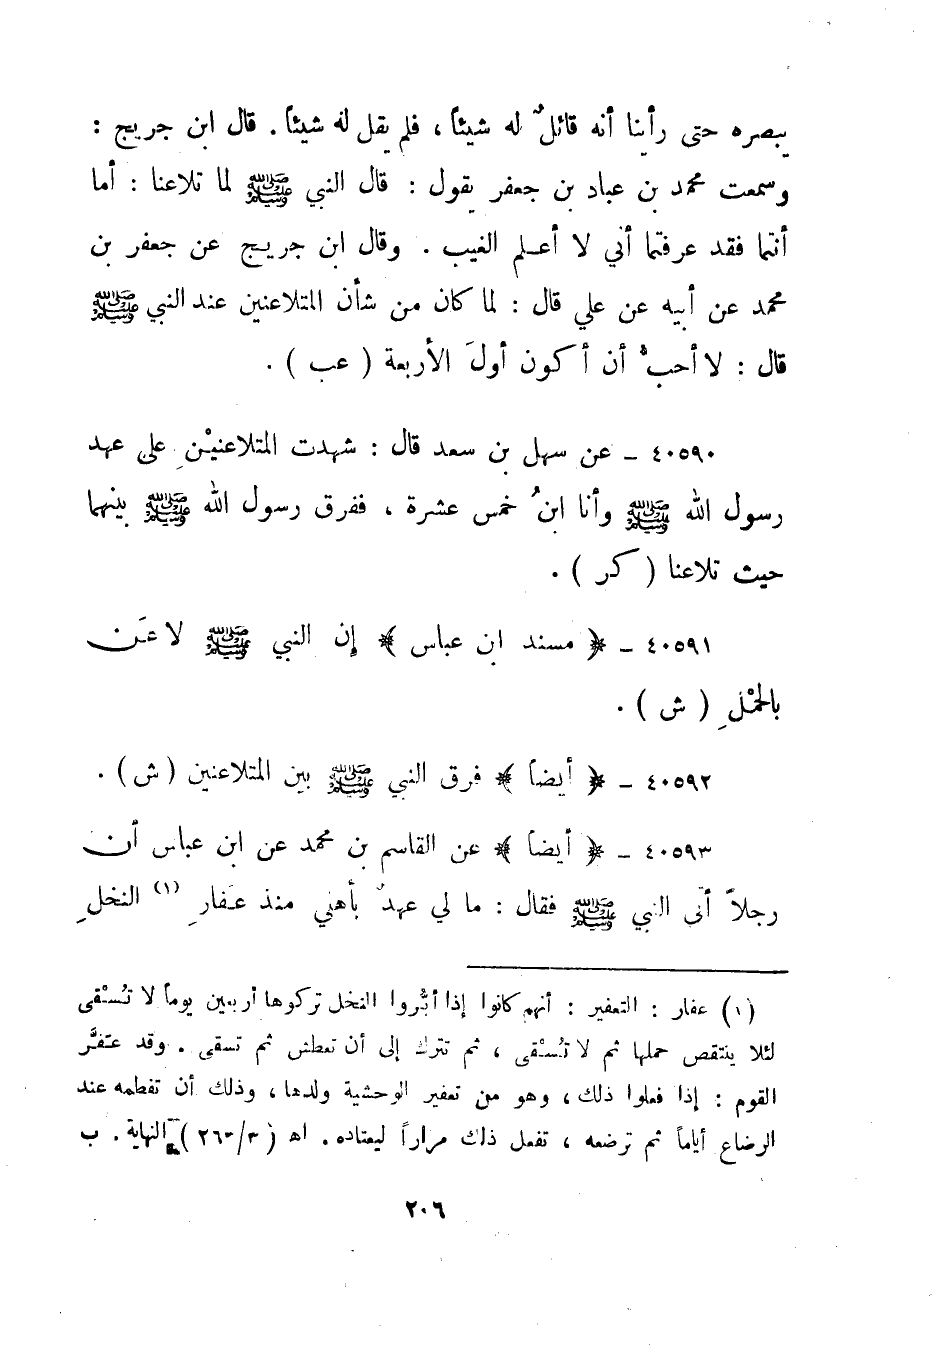 يبصره حتى رأينا أنه قائلٌ له شيئاً ، فلم يقل له شيئاً . قال ابن جريج :
وسمعت محمد بن عباد بن جعفر يقول : قال النبي ﷺ لما تلاعنا : أما
أنتما فقد عرفتما أني لا أعلم الغيب . وقال ابن جريج عن جعفر بن
محمد عن أبيه عن علي قال : لما كان من شأن المتلاعنين عند النبي ﷺ
قال : لا أحبُّ أن أكون أولَ الأربعة ( عب ) .
٤٠٥٩٠ ـ عن سهل بن سعد قال : شهدت المتلاعنيْنِ على عهد
رسول الله ﷺ وأنا ابنُ خمس عشرة ، ففرق رسول الله ﷺ بينهما
حيث تلاعنا ( كر ) .
٤٠٥٩١ ـ ﴿ مسند ابن عباس ﴾ إن النبي ﷺ لاعَن
بالحمْلِ ( ش ) .
٤٠٥٩٢ ـ ﴿ أيضاً ﴾ فرق النبي ﷺ بين المتلاعنين ( ش ) .
٤٠٥٩٣ ـ ﴿ أيضاً ﴾ عن القاسم بن محمد عن ابن عباس أن
رجلاً أتى النبي ﷺ فقال : ما لي عهدٌ بأهلي منذ عَفارِ (١) النخلِ
(١) عفار : التعفير : أنهم كانوا إذا أبَّروا النخل تركوها أربعين يوماً لا تُسْقى
لئلا ينتقص حملها ثم لا تُسْقى ، ثم تترك إلى أن تعطش ثم تسقى . وقد عَفَّرَ
القوم : إذا فعلوا ذلك ، وهو من تعفير الوحشية ولدها ، وذلك أن تفطمه عند
الرضاع أياماً ثم ترضعه ، تفعل ذلك مراراً ليعتاده . اه ( ٣/٢٦٣ ) النهاية . ب
٢٠٦